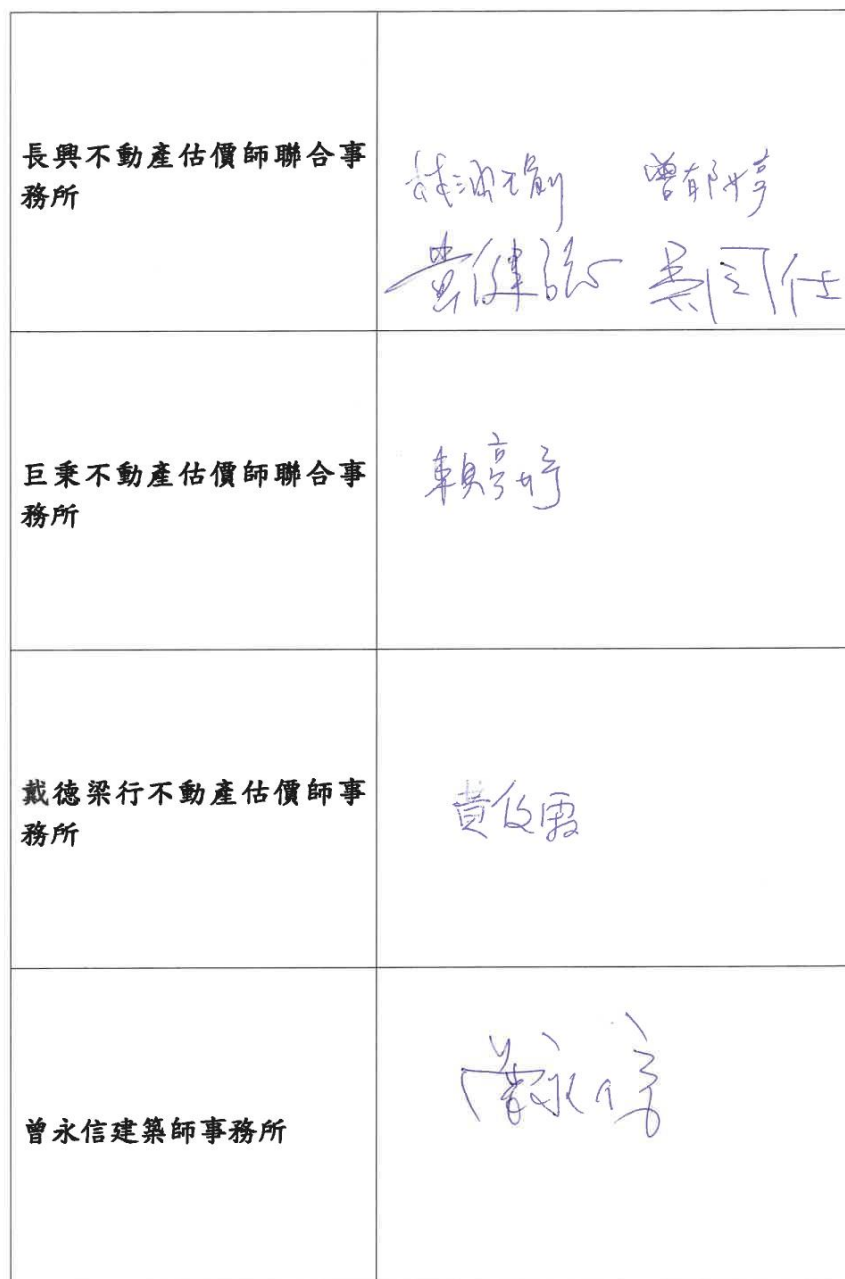 長興不動產估價師聯合事
務所
曾郁婷
黃健誌
巨秉不動產估價師聯合事
務所
賴亭妤
戴德梁行不動產估價師事
務所
曾永信建築師事務所
曾永信